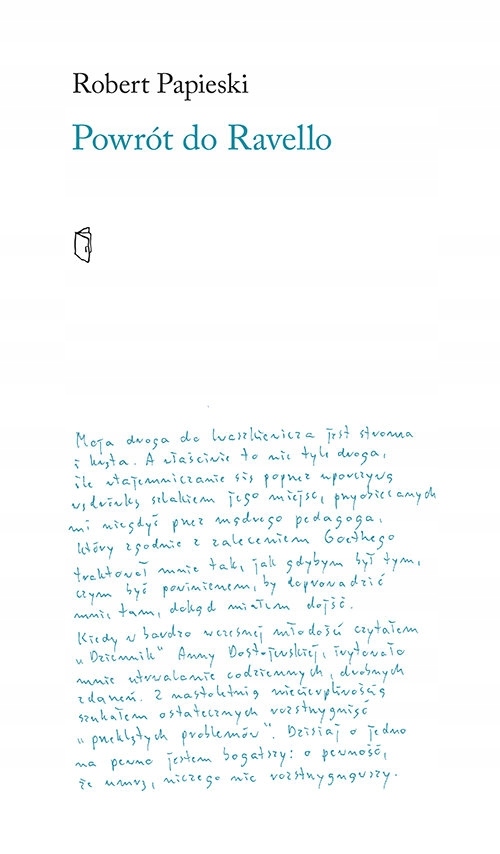 Robert Papieski
Powrót do Ravello
Moja droga do Iwaszkiewicza jest stroma
i kręta. A właściwie to nie tyle droga,
ile wtajemniczanie się poprzez uporczywą
wędrówkę szlakiem jego miejsc, przyobiecanych
mi niegdyś przez mądrego pedagoga,
który zgodnie z zaleceniem Goethego
traktował mnie tak, jak gdybym był tym,
czym być powinienem, by doprowadzić
mnie, tam, dokąd miałem dojść.
Kiedy w bardzo wczesnej młodości czytałem
"Dziennik" Anny Dostojewskiej, irytowało
mnie utrwalanie codziennych, drobnych
zdarzeń. Z nastoletnią niecierpliwością
szukałem ostatecznych rozstrzygnięć
"przeklętych problemów". Dzisiaj o jedno
na pewno jestem bogatszy: o pewność,
że umrę, niczego nie rozstrzygnąwszy.